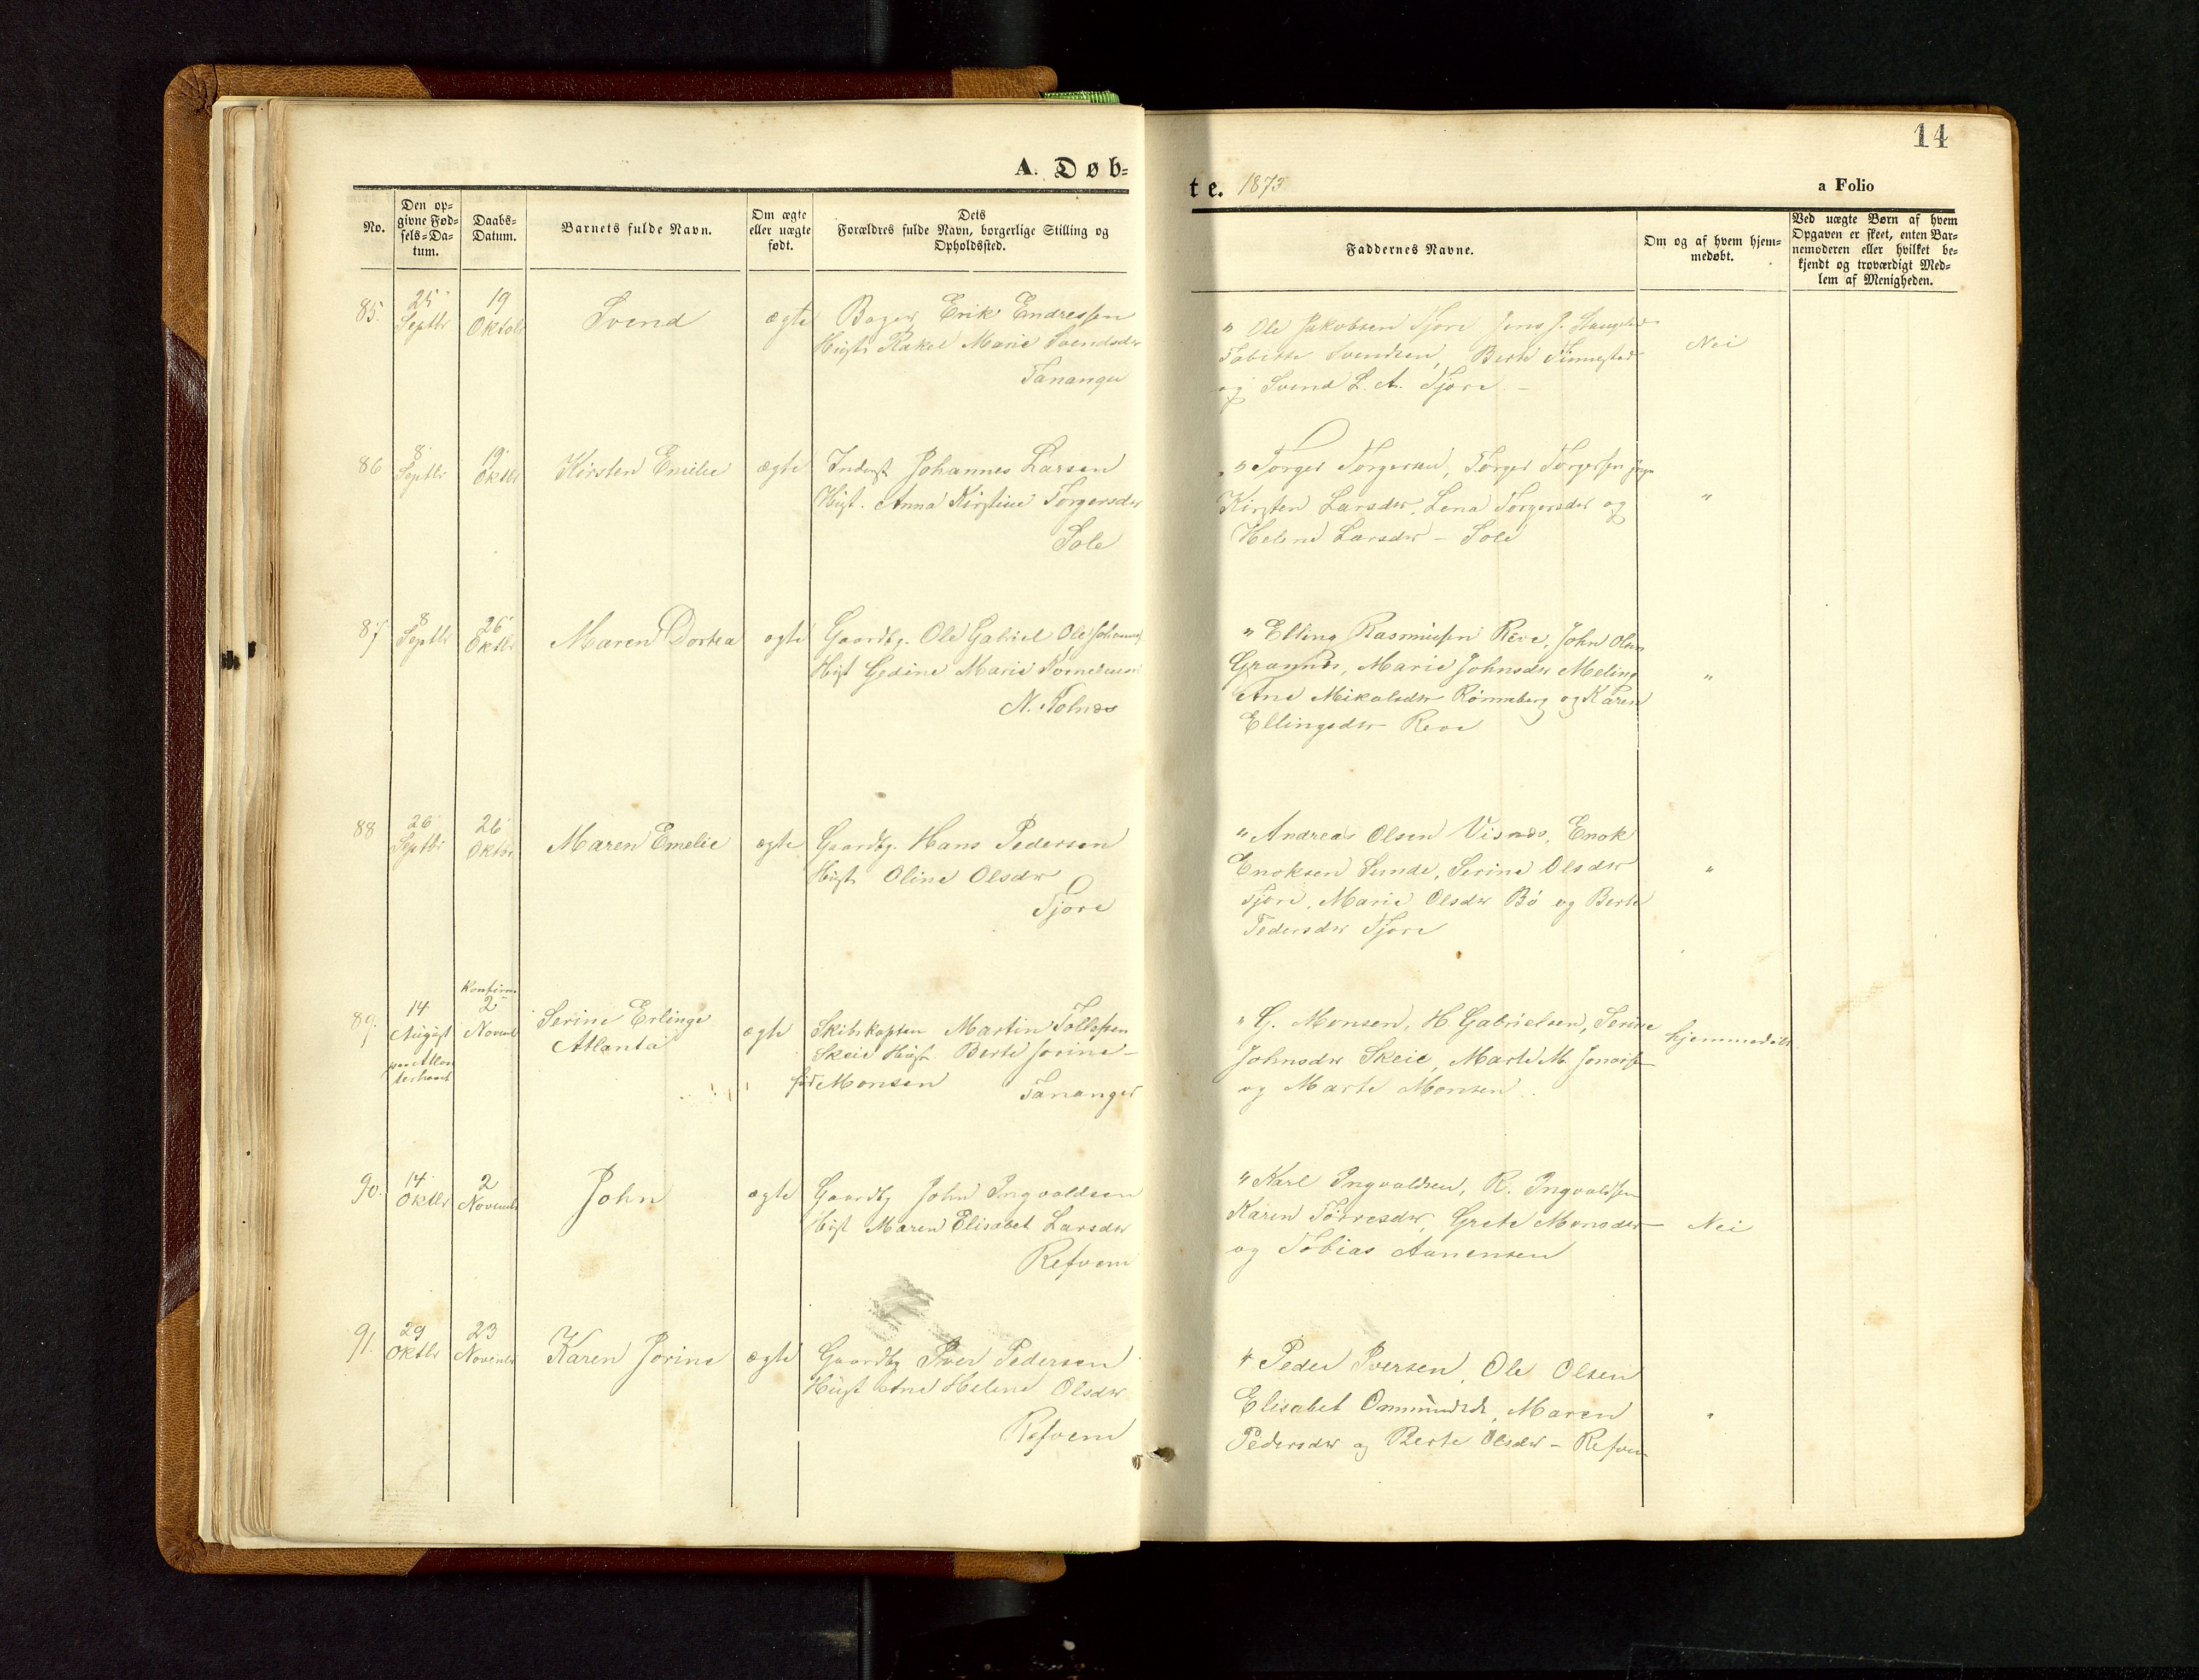 14
A. Døb-
te. 1873
a Folio
No.
Den op-
givne Fød-
sels-Da-
tum.
Daabs-
Datum.
Barnets fulde Navn.
Om ægte
eller uægte
født.
Dets
Forældres fulde Navn, borgerlige Stilling og
Opholdssted.
Faddernes Navne.
Om og af hvem hjem-
medøbt.
Ved uægte Børn af hvem
Opgaven er skeet, enten Bar-
nemoderen eller hvilket be-
kjendt og troværdigt Med-
lem af Menigheden.
85. 25 Septbr 19 Oktobr Svend ægte Erik Endressen
Hust. Rakel Marie Svendsdtr
Tananger
" Ole Jakobsen Tjore Jens J.
Svendsen, Berte
og Svend L. A. Tjore. -
Nei
86 8 Septbr 19 Oktbr Kirsten Emilie ægte Inderst Johannes Larsen
Hust. Anna Kirstine Torgersdtr
Sole
" Torger Torgersen, Torger Torgersen
Kirsten Larsdtr, Lena Torgersdtr og
Helene Larsdtr - Sole
"
87 8 Septbr 26 Oktbr Maren Dortea ægte Gaardbg. Ole Gabriel
Hust Gedine Marie
N. Kolnes
" Elling Rasmusen Reve, John Olsen
Marie Johnsdtr Meling
Ane Mikalsdtr Rönneberg og Karen
Ellingsdtr Reve
"
88 26 Septbr 26 Oktbr Maren Emelie ægte Gaardbg. Hans Pedersen
Hust. Oline Olsdtr
Tjore
" Andreas Olsen Visnes, Enok
Enoksen Sunde, Serine Olsdtr
Tjore, Marie Olsdtr Bö og Berte
Pedersdtr Tjore
"
89. 14 August
Konfirm 2 Novemb Serine Erlinge
Atlanta
ægte Skibskapten Martin Tollefsen
Skeie Hust. Berte Jorine -
föd Monsen Tananger
" G. Monsen, H. Gabrielsen, Serine
Johnsdtr Skeie, Marte M.
og Marte Monsen
hjemmedöbt
90. 14 Oktbr 2 Novemb John ægte Gaardbg John Ingvaldsen
Hust Maren Elisabet Larsdtr
Refvem
" Karl Ingvaldsen, R. Ingvaldsen
Karen Törresdtr, Grete Monsdtr
og Tobias Aanensen
Nei
91. 29 Oktbr 23 Novemb Karen Jorine ægte Gaardbg Iver Pedersen
Hust Ane Helene Olsdtr
Refvem
" Peder Iversen, Ole Olsen
Elisabet Ommundsdtr, Maren
Pedersdtr og Berte Olsdtr - Refvem
"